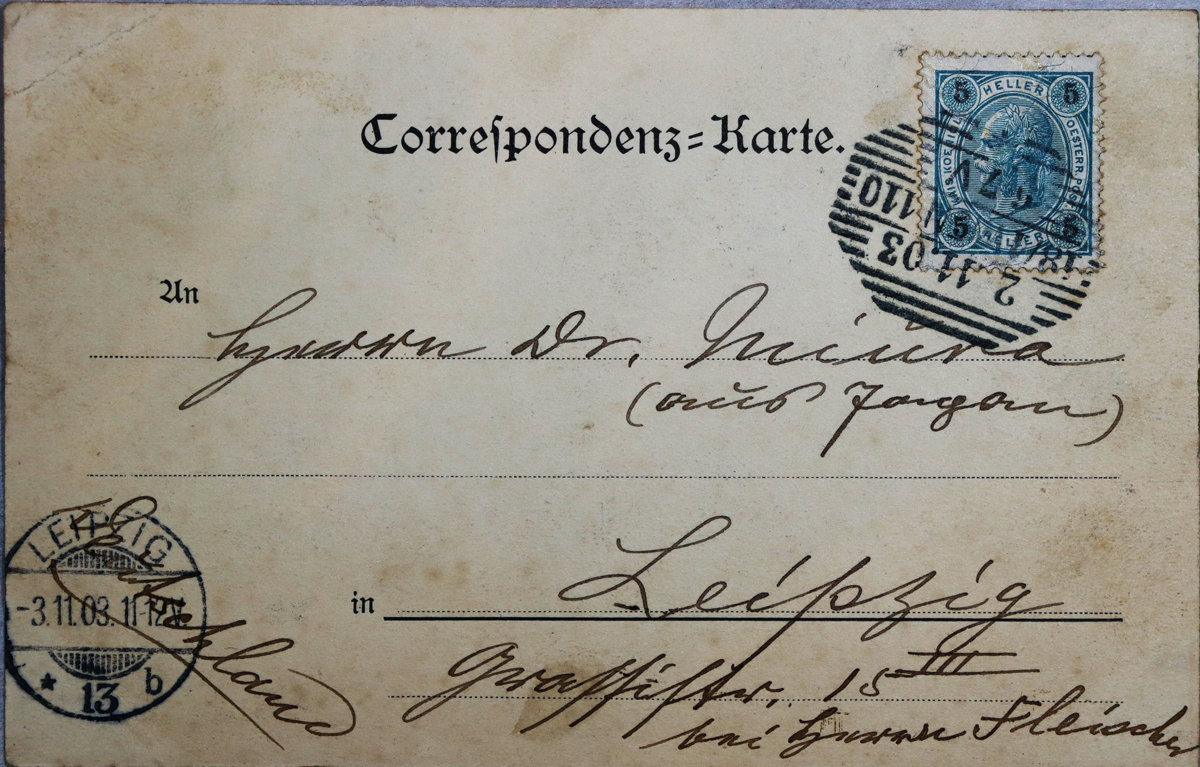 Correſpondenz=Karte.
5 HELLER 5
OESTERR. POST
5 HELLER 5
110
2.11.03
An
Herrn Dr. Miura
(aus Japan)
in Leipzig
Grassistr. 15 III
bei Herrn Fleischer
Deutschland
LEIPZIG
-3.11.03. 11-12V.
* 13 b